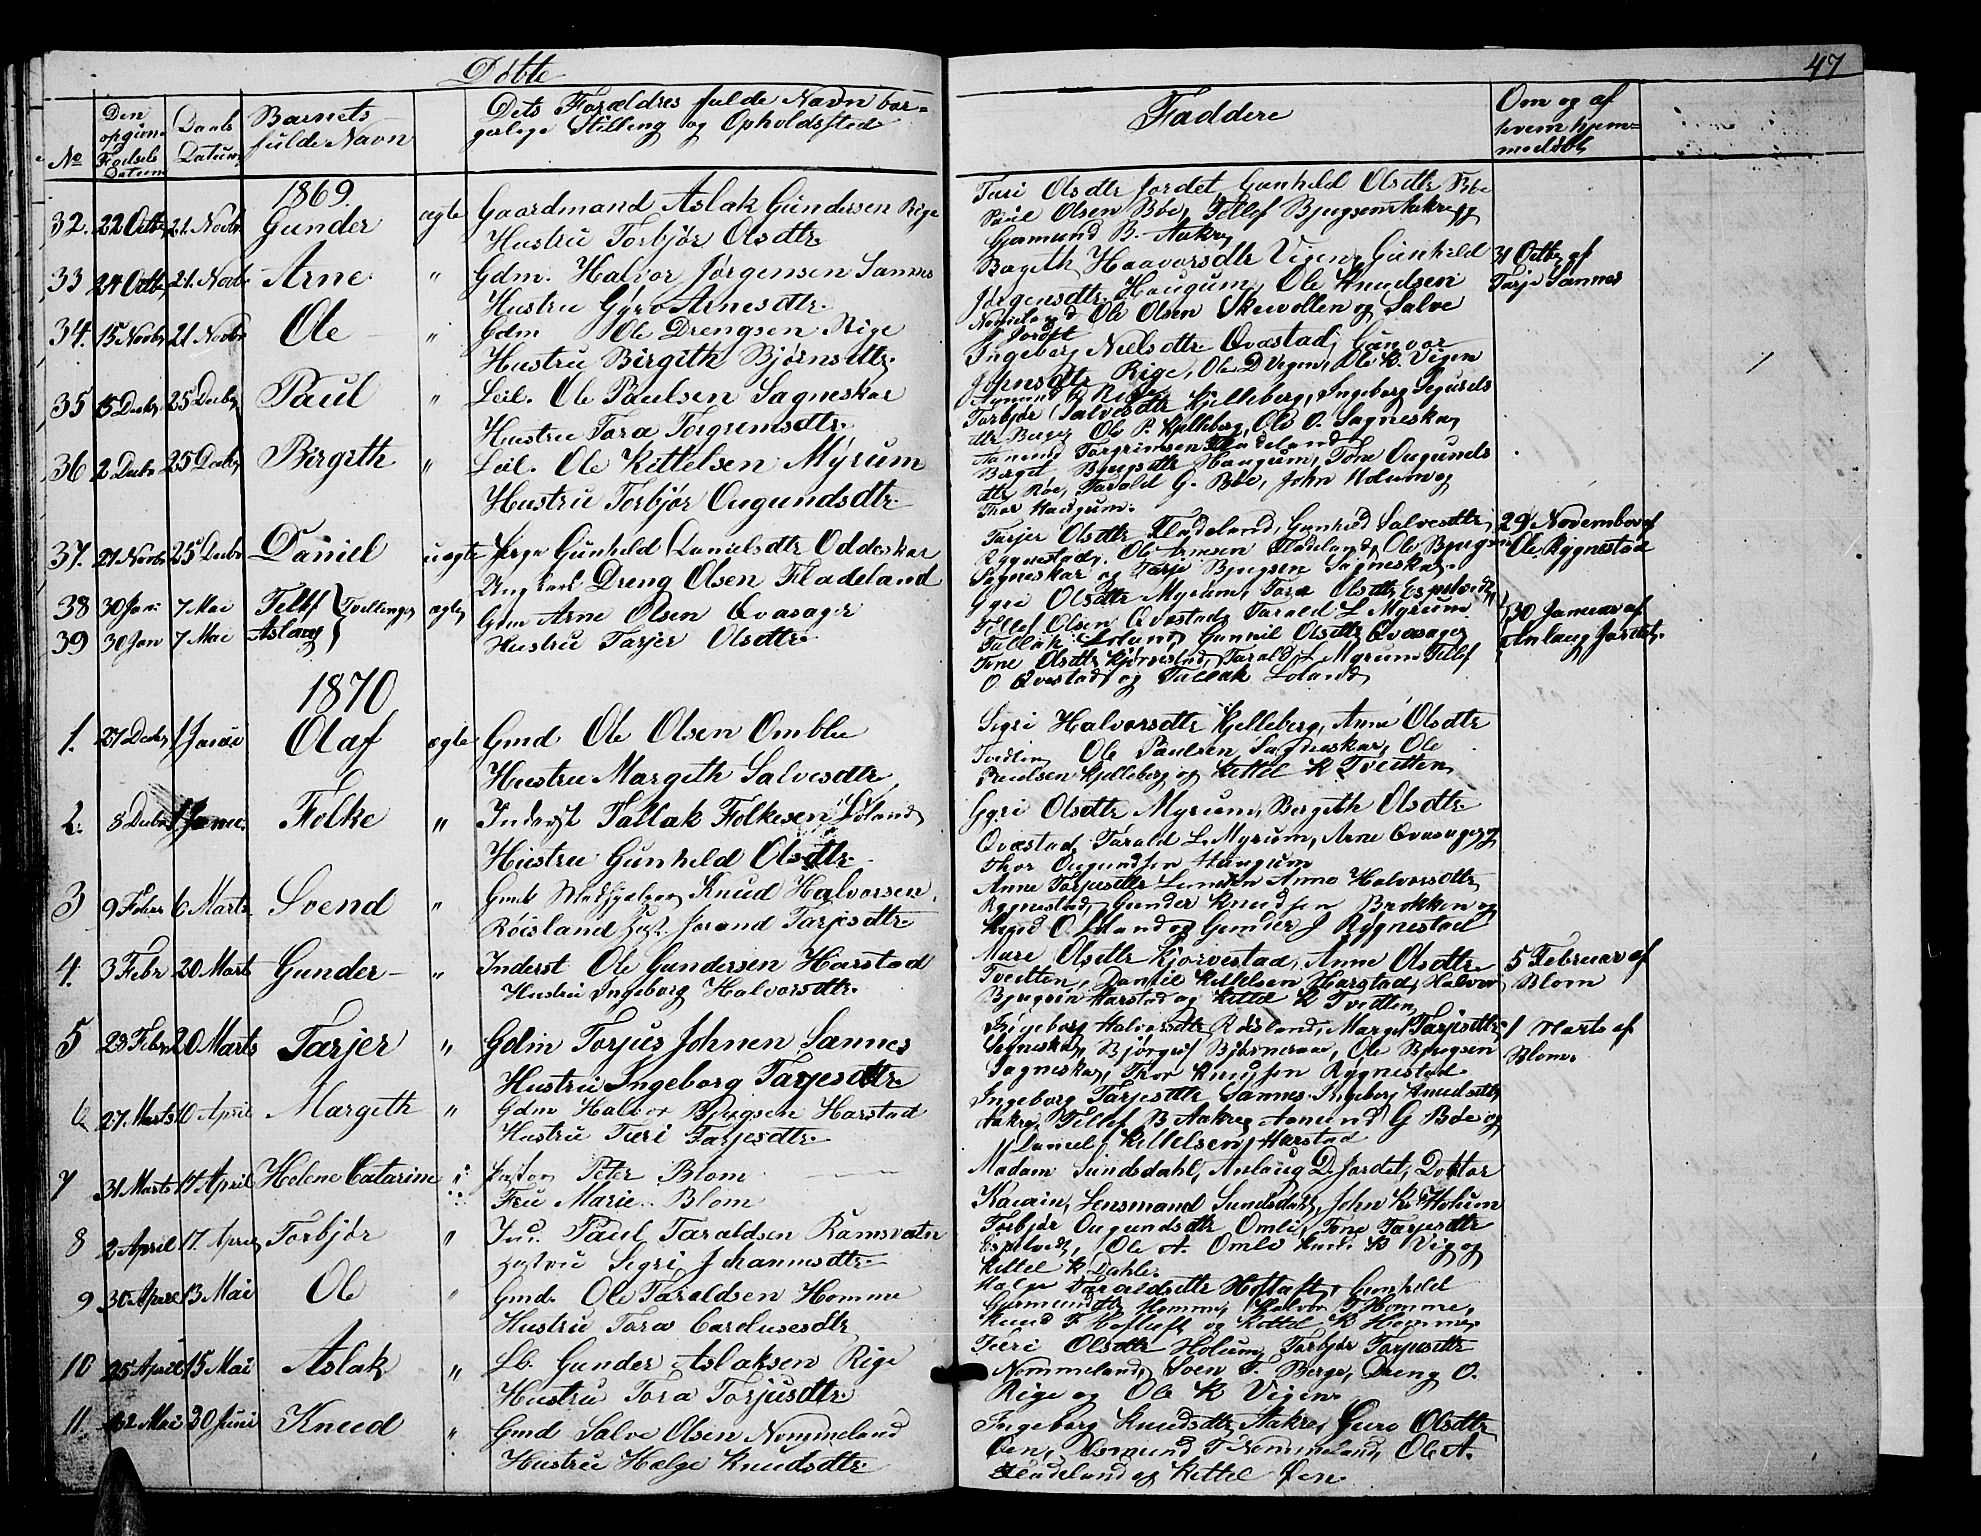 47
Døbte
No
Den opgivne Fødsels Datum
Daabs Datum
Barnets fulde Navn
Dets Forældres fulde Navn borgerlige Stilling og Opholdssted
Faddere
Om og af hvem hjemmedøbt
1869.
32. 22 Octbr 21. Novbr Gunder ægte Gaardmand Aslak Gundersen Rige
Hustru Torbjør Olsdtr.
Turi Olsdtr Jordet, Gunhild Olsdtr Bøe
Paul Olsen Bøe, Tellef Bjugsen Aakre og
Gjermund B. Aakre
33 24 Octbr 21. Novbr Arne " Gdm. Halvor Jørgensen Sannes
Hustru Gyro Arnesdtr.
Bergith Haavorsdtr Vigen, Gunhild
Jørgensdtr Haugum, Ole Knudsen
Nomeland Ole Olsen Skevollen og Salve
Jordet
31 Octbr af
Tarje Sannes
34. 15 Novbr 21 Novbr Ole " Gdm Ole Drengsen Rige
Hustru Birgith Bjørnsdtr.
Ingeborg Nielsdtr Qvæstad, Gunvor
Johnsdtr Rige, Ole D Vigen, Ole K. Vigen
35 15 Decbr 25 Decbr Paul " Leil. Ole Paulsen Sagneskar
Hustru Tora Torgrimsdtr.
Torbjør Salvesdtr Kjelleberg, Ingeborg Sjurds
dtr Berge Ole P. Kjelleberg, Ole O. Sagneskar
Aanund Torgrimsen Fladeland
36 2 Decbr 25 Decbr Birgith " Leil. Ole Kittelsen Myrum
Hustru Torbjør Ougundsdtr.
Berget Bjugsdtr Haugum, Tone Ougunds
dtr Bøe, Tarald G. Bøe, John Holum og
Thor Haugum.
37. 21 Novbr 25 Decbr Daniel uægte Pige Gunhild Danielsdtr Oddeskar
Ungkarl Dreng Olsen Fladeland
Tarjer Olsdtr Fladeland, Gunhild Salvesdtr
Rygnestad, Ole Arnsen Fladeland, Ole Bjugsen
Sagneskar og Tarje Bjugsen Sagneskar.
29 November af
Ole Rygnestad
38 30 Jan 7 Mai Tellef Tvillinger ægte Gdm Arne Olsen Qvasager
39 30 Jan 7 Mai Aslaug Hustru Tarjer Olsdtr.
Gyri Olsdtr Myrum, Tora Olsdtr Espetveit
Tellef Olsen Qvæstad, Tarald L Myrum
Tallak Loland, Gunnil Olsdtr Qvasager
Tone Olsdtr Kjørvestad, Tarald L Myrum Tellef
O. Qvestad og Tallak Loland
30 Januar af
Anlaug Jordet.
1870
1. 27 Decbr 1 Januar Olaf ægte Gmd Ole Olsen Omblie
Hustru Margith Salvesdtr
Sigri Halvorsdtr Kjelleberg, Anne Olsdtr
Tveiten Ole Paulsen Sagneskar, Ole
Paulsen Kjelleberg og Kettel K Tveitten
2. 8 Decbr 1 Januar Folke " Inderst Tallak Folkesen Loland
Hustru Gunhild Olsdtr.
Gyri Olsdtr Myrum, Bergith Olsdtr.
Qvæstad, Tarald L. Myrum, Arne Qvasager og
Thor Ougundsen Haugum
3 9 Febr 6 Marts Svend " Knud Halvorsen
Røisland Hust. Jorand Tarjesdtr
Anne Tarjesdtr Lunden Anne Halvorsdtr
Rygnestad, Gunder Knudsen Brokken og
Knud O. Loland og Gunder J Rygnestad
4. 3 Febr 20 Marts Gunder " Inderst Ole Gundersen Harstad
Hustru Ingeborg Halvorsdtr.
Mare Olsdtr Kjørvestad, Anne Olsdtr
Tveitten, Daniel Kittelsen Harstad, Halvor
Bjugsen Harstad og Kettel K Tveitten
5 Februar af
Blom
5 23 Febr 20 Marts Tarjer " Gdm Torjus Johnen Sannes
Hustru Ingeborg Tarjesdtr.
Ingeborg Halvorsdtr Røisland, Marget Tarjesdtr
Sagneskar, Bjørgulf Bjørneraa, Ole Bjugsen
Sagneskar, Thor Knudsen Rygnestad.
1 Marts af
Blom
6 27. Marts 10 April Margith " Gdm Halvor Bjugsen Harstad
Hustru Turi Tarjesdtr.
Ingeborg Tarjesdtr Sannes Ingeborg Knudsdtr
Aakre, Tellef B Aakre Aamund G Bøe og
Daniel Kittelsen Harstad
7 31 Marts 17 April Helene Catarine " Pastor Peter Blom
Fru Marie Blom
Madam Sundsdahl, Anlaug D. Jordet, Doktor
Kaurin, Lensmand Sundsdahl, John K. Holum
8 2 April 17. April Torbjør " Ind. Paul Taraldsen Ramsvatn
Hustru Sigri Johannesdtr.
Torbjør Ougundsdtr Omli, Tone Tarjesdtr
Espetveit, Ole A. Omli Knud K Vig og
Kittel K Dahle.
9 30 April 13 Mai Ole " Gmd. Ole Taraldsen Homme
Hustru Tora Carolusesdtr
Helge Taraldsdtr Hoftuft, Gunhild
Gjermundsdtr Homme, Halvor T Homme,
Knud T Hoftuft og Kittel K Homme.
10 25 April 15 Mai Aslak " Lb. Gunder Aslaksen Rige
Hustru Tora Torjusdtr.
Turi Olsdtr Holum, Torbjør Torjusdtr
Nommeland, Sven T. Berge, Dreng O.
Rige og Ole K Vigen.
11. 22 Mai 20 Juni Knud " Gmd Salve Olsen Nommeland
Hustru Helge Knudsdtr.
Ingeborg Knudsdtr Aakre, Guro Olsdtr
Øen, Aasmund T Nommeland, Ole A.
Fladeland og Kettel Øen.